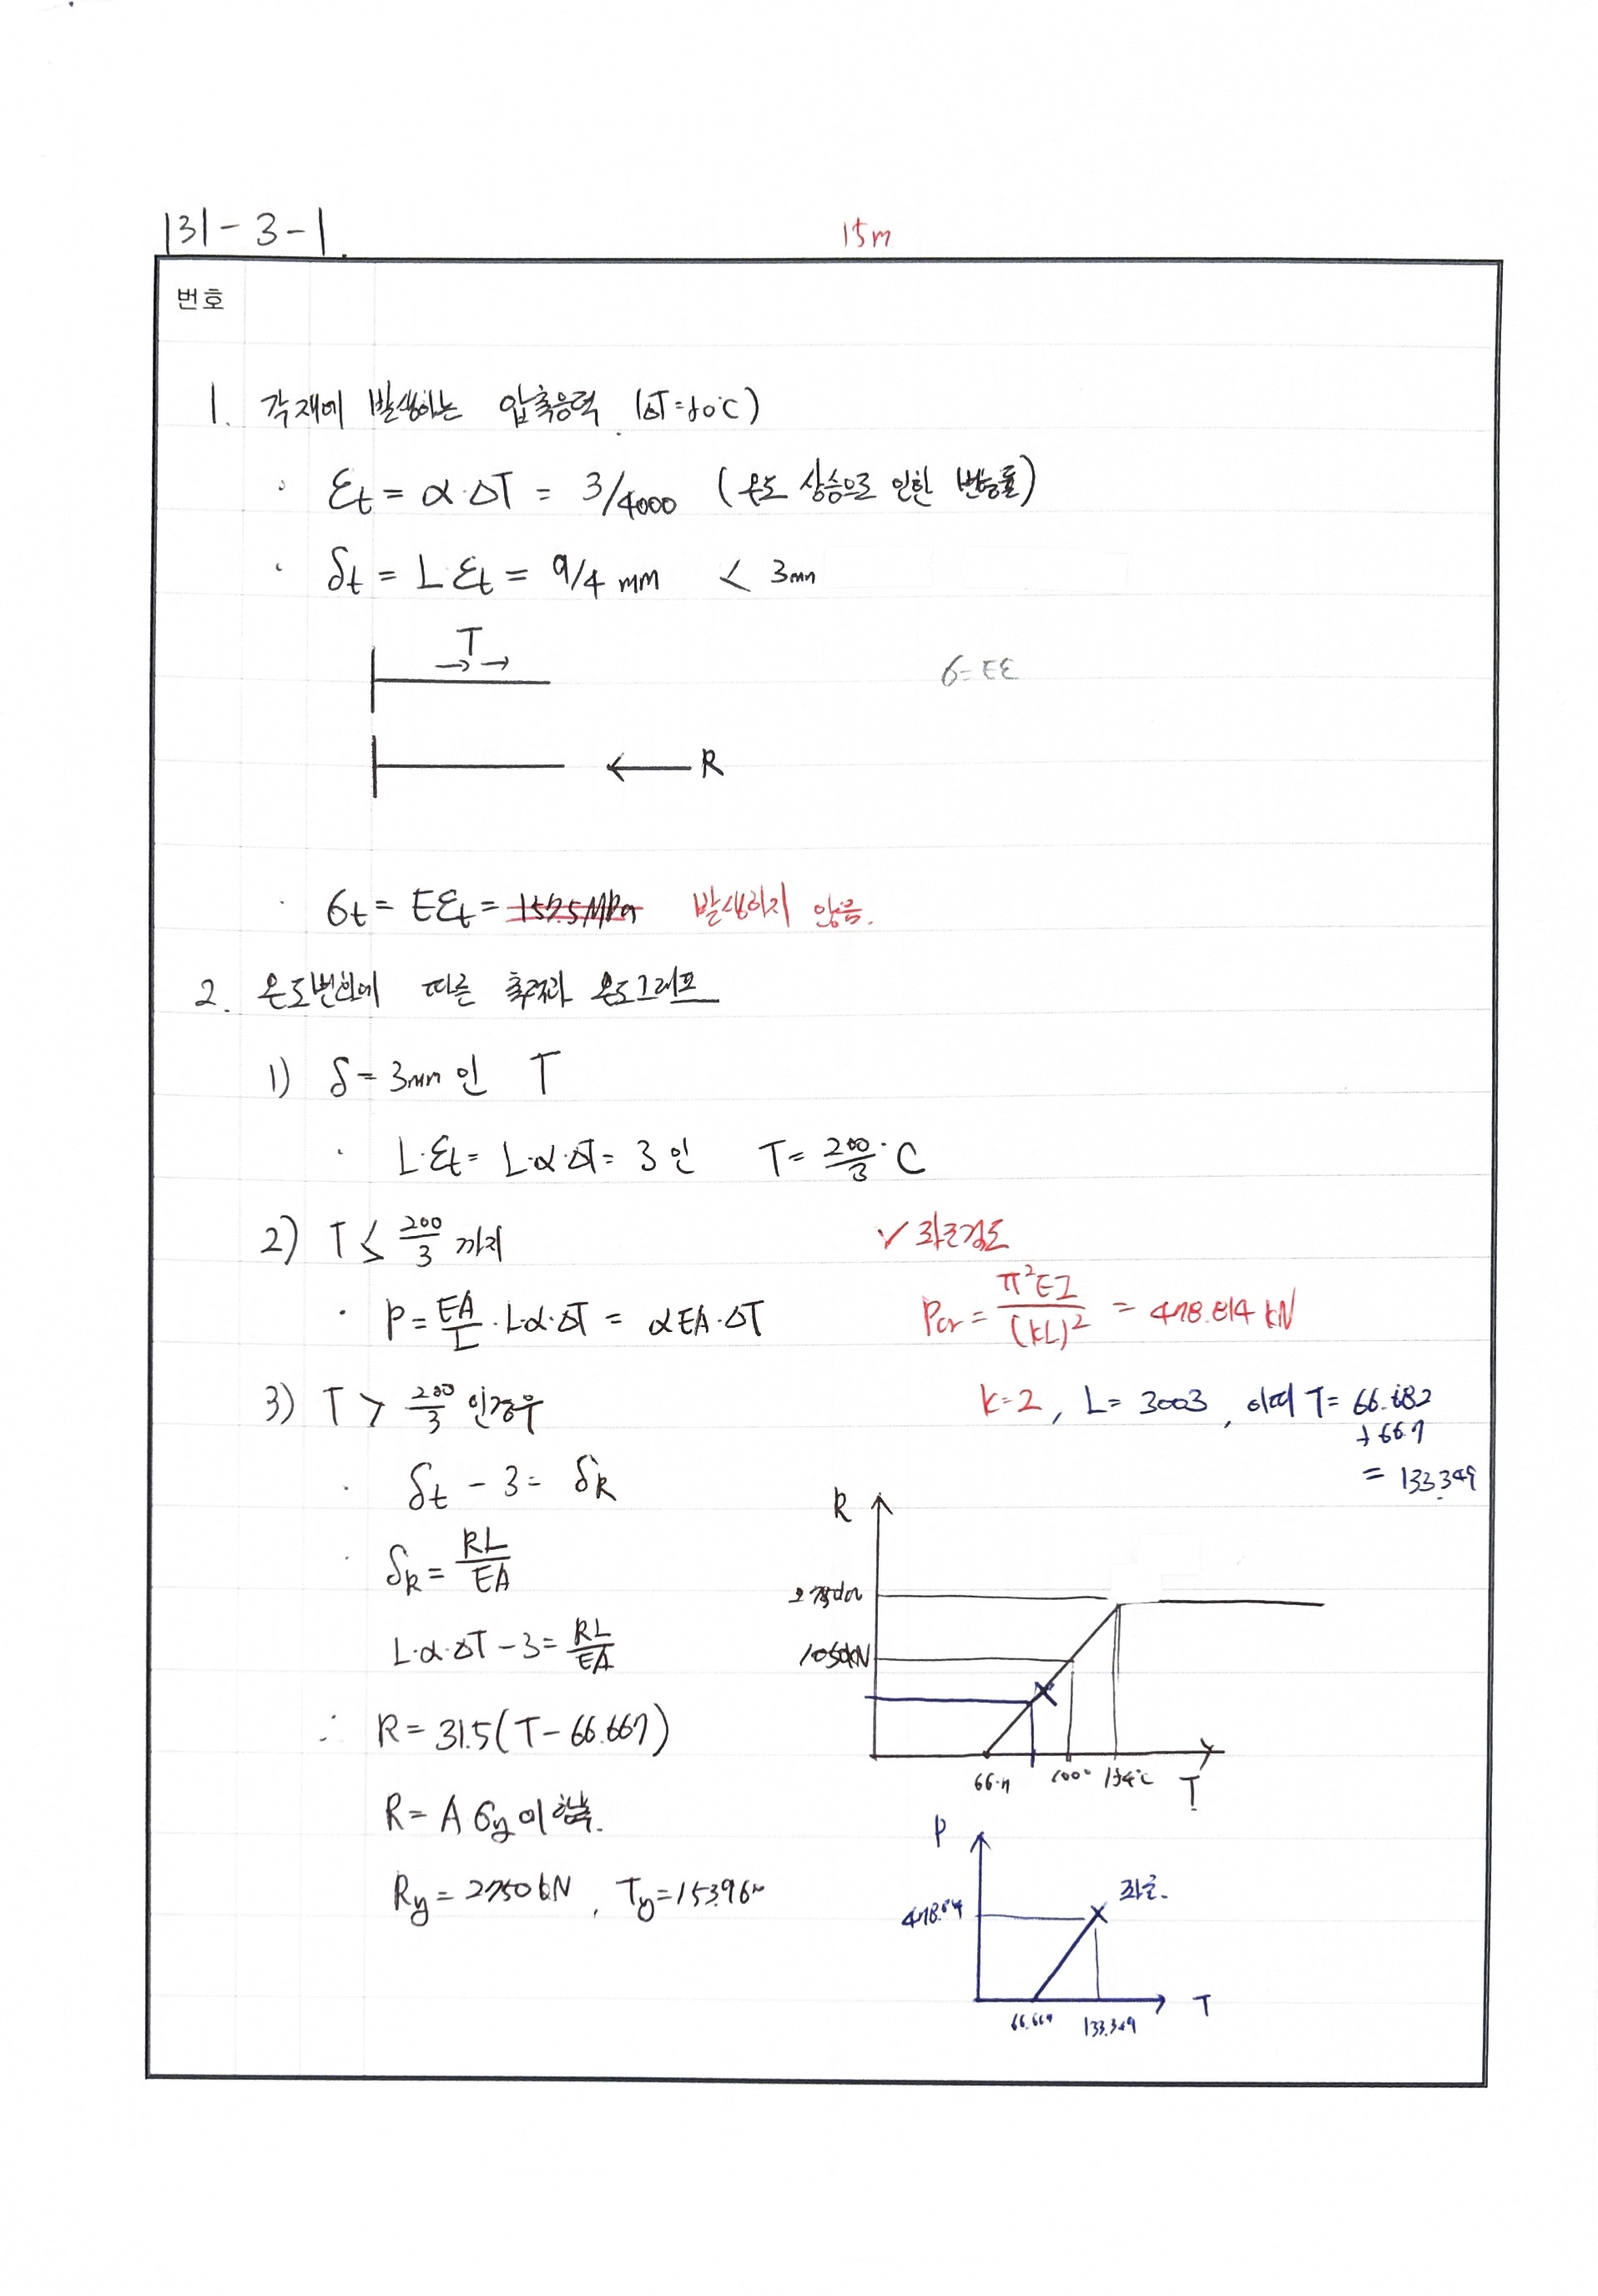 131-3-1.
15m
번호
1. 각재에 발생하는 압축응력 (ΔT=50℃)
· εt = α·ΔT = 3/4000 (온도 상승으로 인한 변형률)
· δt = L εt = 9/4 mm < 3mm
T
σ=Eε
R
· σt = Eεt = 157.5MPa 발생하지 않음.
2. 온도변화에 따른 축력과 온도그래프
1) δ = 3mm 인 T
· L·εt = L·α·ΔT = 3 인 T = 200/3 °C
2) T ≤ 200/3 까지
· P = EA/L · L·α·ΔT = αEA·ΔT
✓ 좌굴검토
Pcr = π²EI/(kL)² = 478.814 kN
3) T > 200/3 인경우
k=2, L = 3003, 이때 T = 66.682
+66.7
= 133.349
· δt - 3 = δR
· δR = RL/EA
L·α·ΔT - 3 = RL/EA
∴ R = 31.5(T - 66.667)
R = A σy 이
Ry = 2750kN, Ty = 153.96
R
1050kN
66.7 100° 154℃ T
P
좌굴.
478.84
66.667 133.349 T